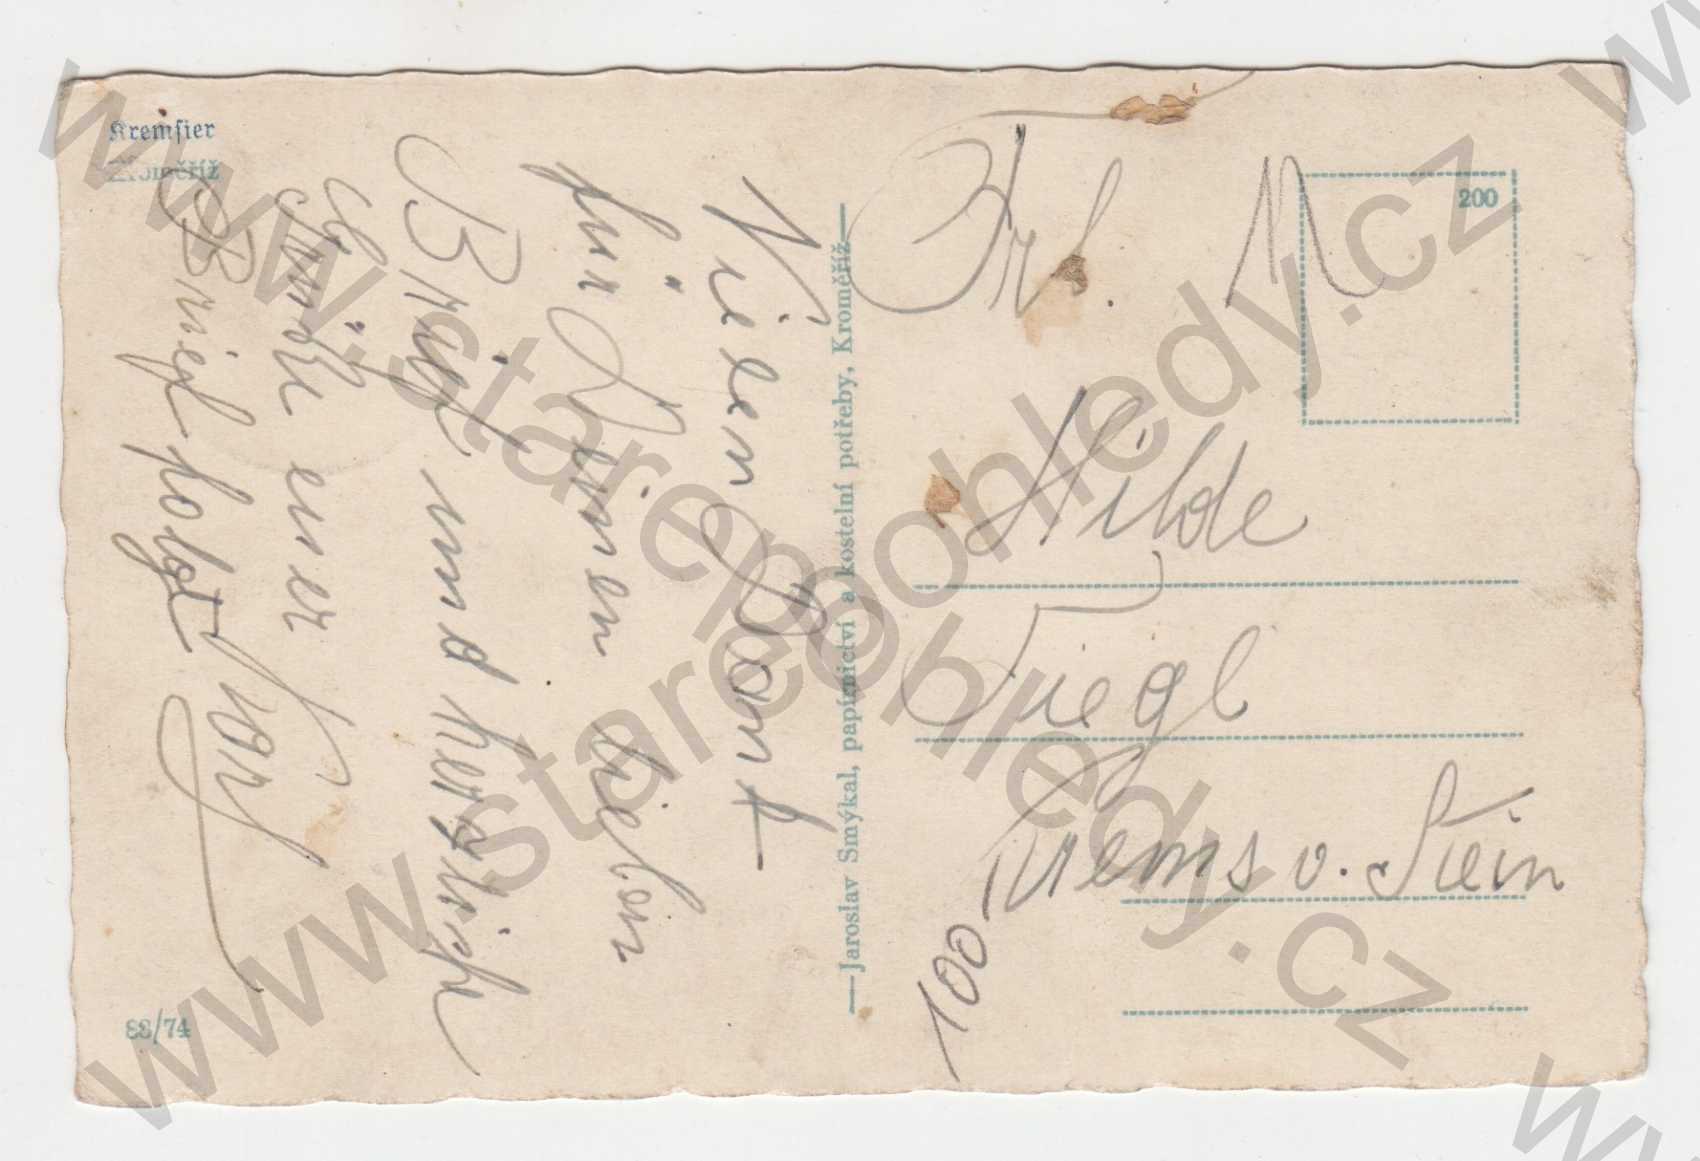 Kremsier
Kroměříž
Vielen Dank
für Deinen lieben
Brief und herzliche
Grüße euer
Karl
Brief folgt
88/74
—Jaroslav Smýkal, papírnictví a kostelní potřeby, Kroměříž—
200
Frl.
Hilde
Krems v. Stein
100-
www.starepohledy.cz
www.starepohledy.cz